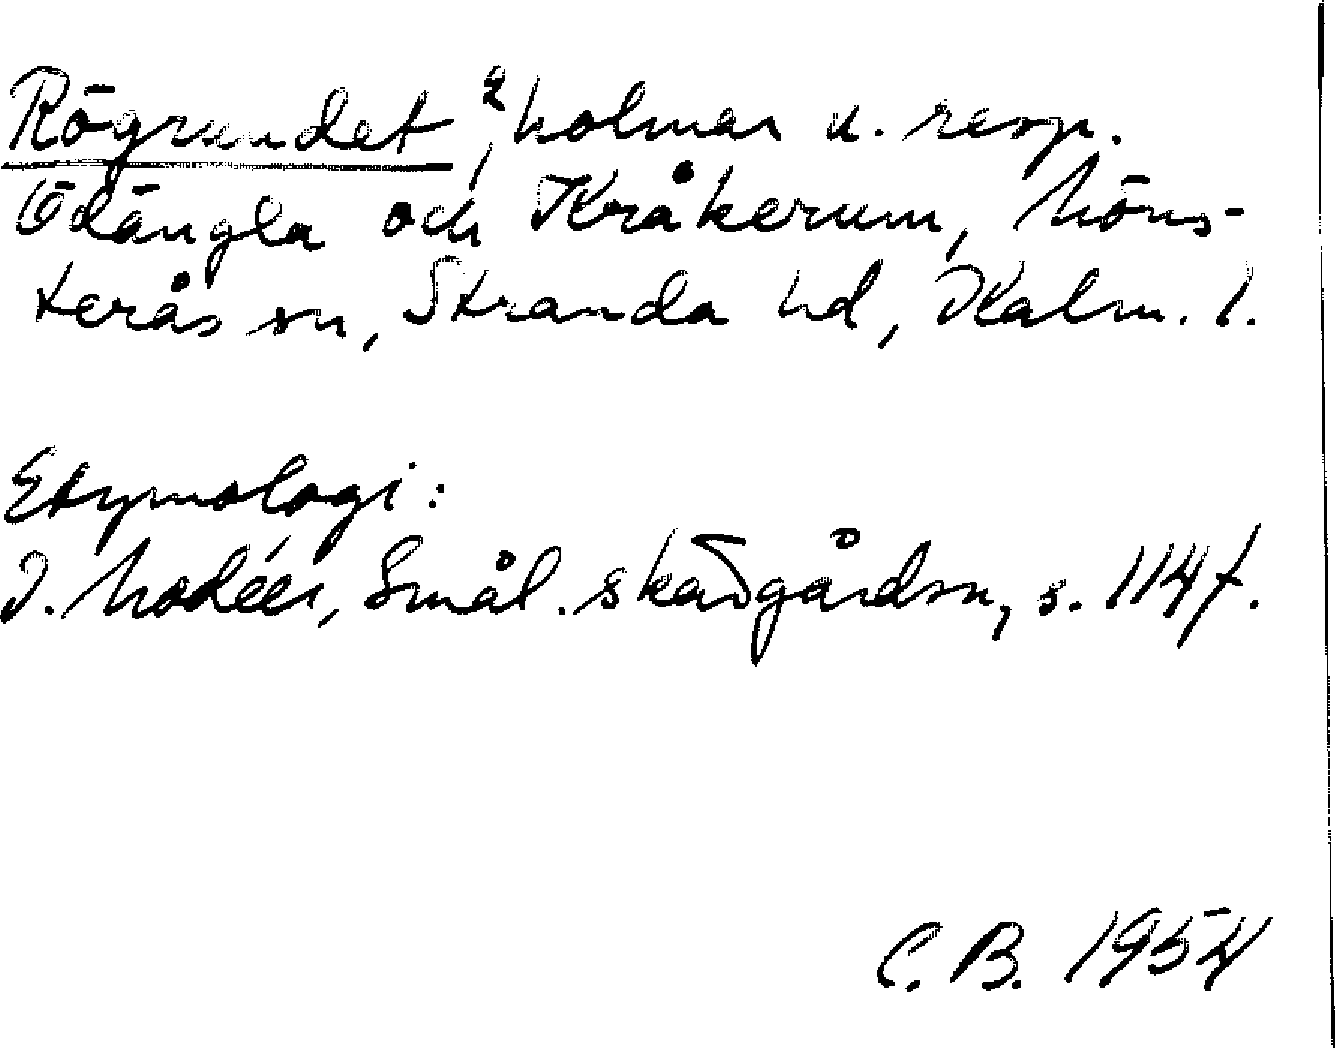 Rögrundet, 2 holmar u. resp.
Ödängla och Kråkerum, Möns-
terås sn, Stranda hd, Kalm. l.
Etymologi:
I. Modéer, Smål. skärgårdsn, s. 114 f.
C. B. 1954